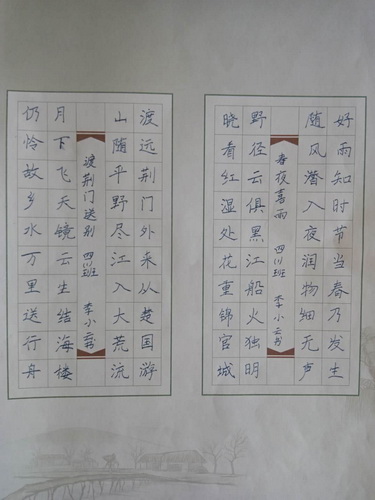 好雨知时节当春乃发生
随风潜入夜润物细无声
春夜喜雨 四(1)班 李小云书
野径云俱黑江船火独明
晓看红湿处花重锦官城
渡远荆门外来从楚国游
山随平野尽江入大荒流
渡荆门送别 四(1)班 李小云书
月下飞天镜云生结海楼
仍怜故乡水万里送行舟